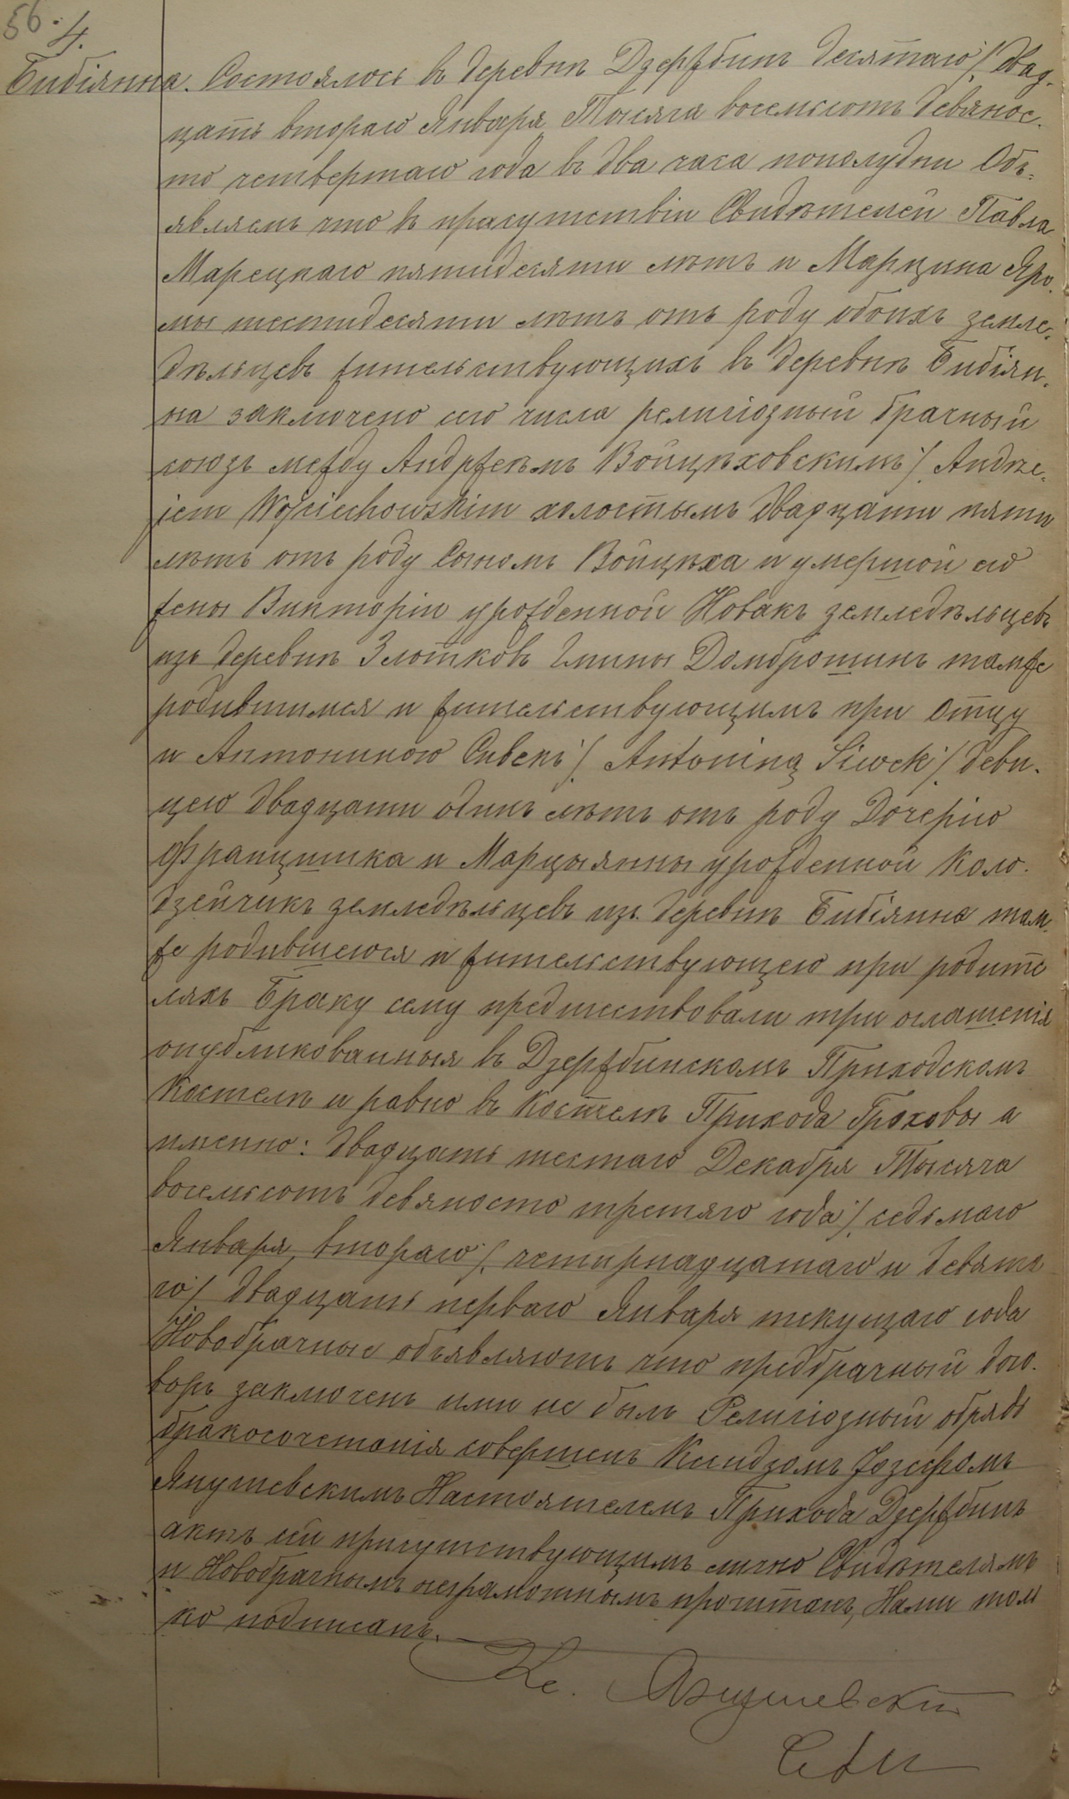 56.
4.
Бибіянна. Состоялось въ деревнѣ Дзержбинъ десятаго/ двад-
цать втораго Января Тысяча восемьсотъ девянос-
то четвертаго года въ два часа пополудни Объ-
являемъ что въ присутствіи Свидѣтелей Павла
Марецкаго пятидесяти лѣтъ и Марцина Яро-
мы шестидесяти лѣтъ отъ роду обоихъ земле-
дѣльцевъ жительствующихъ въ деревнѣ Бибіян-
на заключено сего числа религіозный брачный
союзъ между Андржеемъ Войцѣховскимъ/ Andrze-
jem Wojciechowskim холостымъ двадцати пяти
лѣтъ отъ роду Сыномъ Войцѣха и умершой его
жены Викторіи урожденной Новакъ земледѣльцевъ
изъ деревни Злотковъ Гмины Домброшинъ тамже
родившимся и жительствующимъ при отцу
и Антониною Сивекъ/ Antoniną Siwek/ деви-
цею двадцати одинъ лѣтъ отъ роду Дочерію
Францишка и Марцыянны урожденной Коло-
дзейчикъ земледѣльцевъ изъ деревни Бибіянна там-
же родившеюся и жительствующею при родите
ляхъ Браку сему предшествовали три оглашенія
опубликованныя въ Дзержбинскомъ Приходскомъ
Костелѣ и равно въ Костелѣ Прихода Гроховы а
именно: двадцать шестаго Декабря Тысяча
восемьсотъ девяносто третяго года/ седьмаго
Января, втораго/ четырнадцатаго и девята
го/ двадцать перваго Января текущаго года
Новобрачные объявляютъ что предбрачный дого-
воръ заключенъ ими не былъ Религіозный обрядъ
бракосочетанія совершенъ Ксендзомъ Јозефомъ
Янушевскимъ Настоятелемъ Прихода Дзержбинъ
актъ сей присутствующимъ лично Свидѣтелямъ
и Новобрачнымъ неграмотнымъ прочитанъ, Нами толь
ко подписанъ.
Кс. Янушевскій